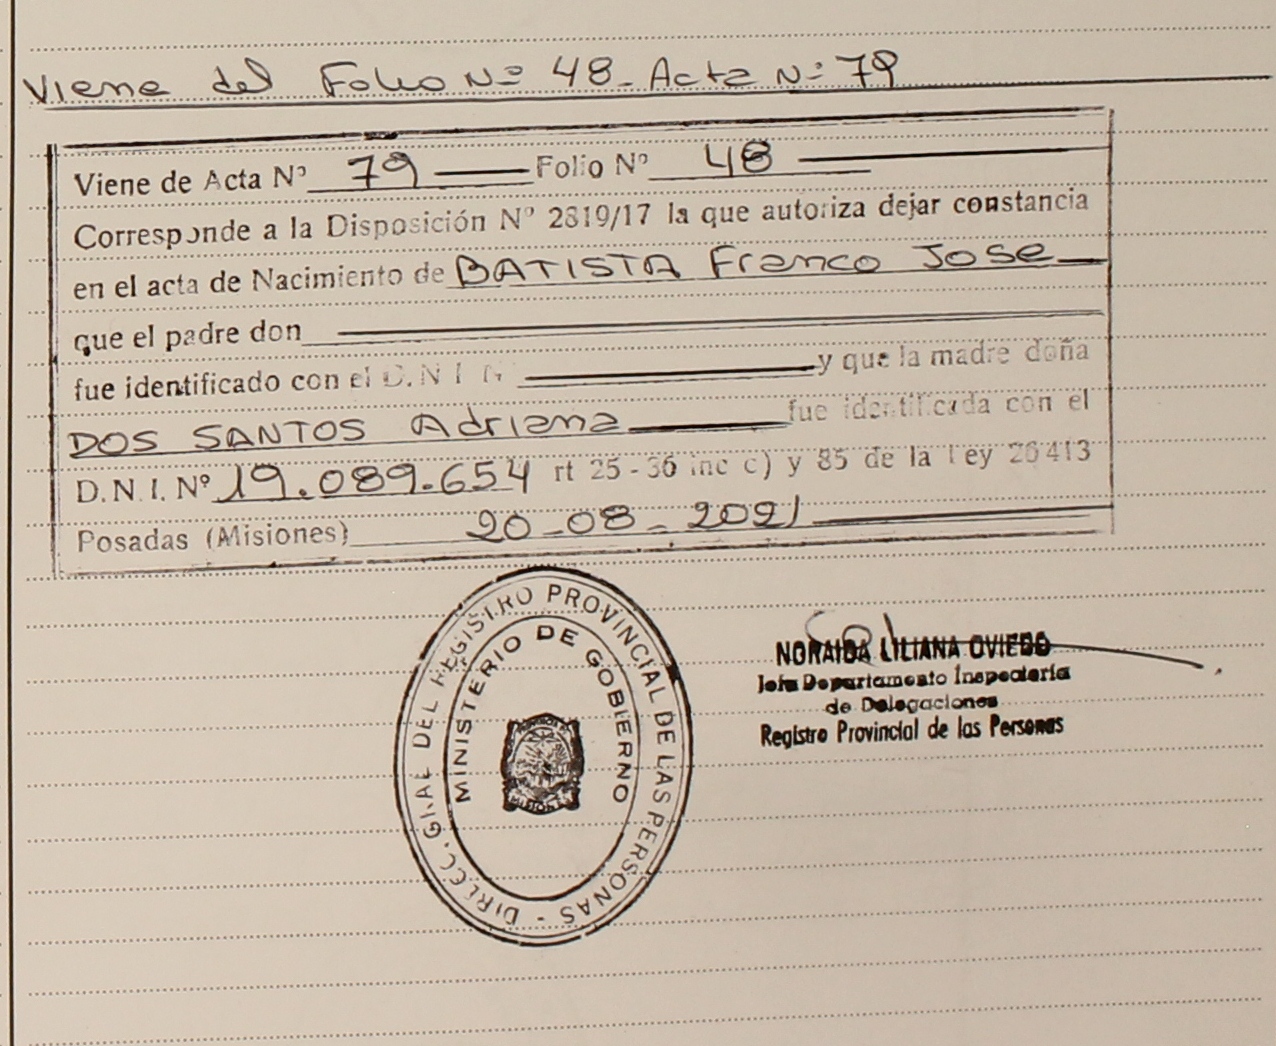 Viene del Folio Nº 48 - Acta Nº 79
Viene de Acta Nº 79 Folio Nº 48
Corresponde a la Disposición Nº 2819/17 la que autoriza dejar constancia
en el acta de Nacimiento de BATISTA Franco Jose
que el padre don
fue identificado con el D.N.I. N
y que la madre doña
DOS SANTOS Adriana fue identificada con el
D.N.I. Nº 19.089.654 rt 25 - 36 inc c) y 85 de la Ley 26413
Posadas (Misiones) 20-08-2021
DIRECC. GRAL DEL REGISTRO PROVINCIAL DE LAS PERSONAS -
MINISTERIO DE GOBIERNO
MISIONES
NORAIDA LILIANA OVIEDO
Jefa Departamento Inspectoria
de Delegaciones
Registro Provincial de las Personas